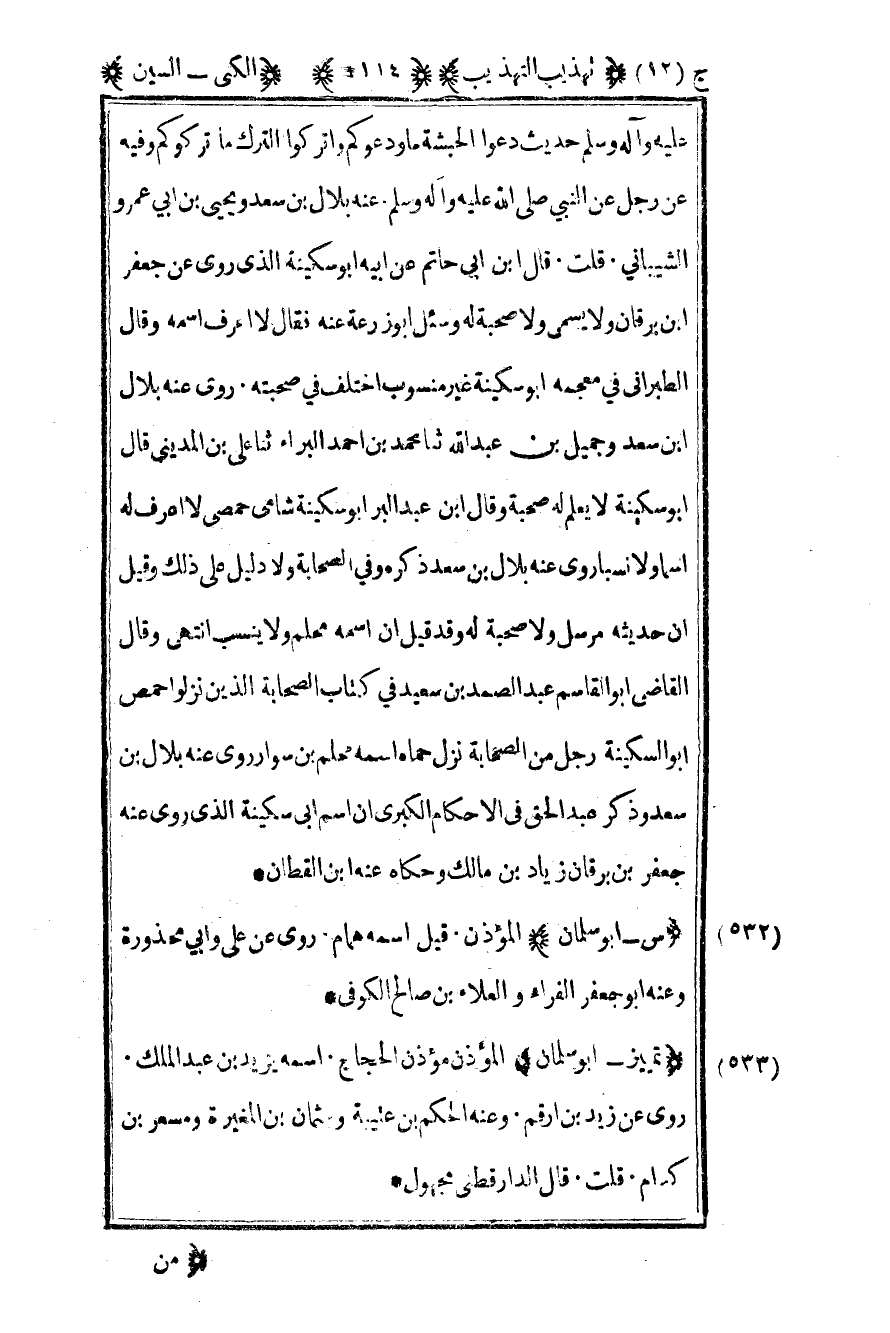 ج (١٢) ﴿ تهذيب التهذيب ﴾ ﴿ ١١٤ ﴾ ﴿ الكنى ـ السين ﴾
عليه وآله وسلم حديث دعوا الحبشة ماودعوكم واتركوا الترك ما تركوكم وفيه
عن رجل عن النبي صلى الله عليه وآله وسلم . عنه بلال بن سعد ويحيى بن ابي عمرو
الشيباني . قلت . قال ابن ابي حاتم عن ابيه ابو سكينة الذى روى عن جعفر
ابن برقان ولا يسمى ولا صحبة له وسئل ابوزرعة عنه فقال لا اعرف اسمه وقال
الطبرانى في معجمه ابو سكينة غير منسوب اختلف في صحبته . روى عنه بلال
ابن سعد وجميل بن عبد الله ثنا محمد بن احمد البراء ثنا على بن المديني قال
ابو سكينة لا يعلم له صحبة وقال ابن عبد البر ابو سكينة شامى حمصى لا اعرف له
اسما ولا نسبا روى عنه بلال بن سعد ذكره وفي الصحابة ولا دليل على ذلك وقيل
ان حديثه مرسل ولا صحبة له وقد قيل ان اسمه محلم ولا ينسب انتهى وقال
القاضى ابو القاسم عبد الصمد بن سعيد في كتاب الصحابة الذين نزلوا حمص
ابو السكينة رجل من الصحابة نزل حماه اسمه محلم بن سوار روى عنه بلال بن
سعد وذكر عبد الحق فى الاحكام الكبرى ان اسم ابى سكينة الذى روى عنه
جعفر بن برقان زياد بن مالك وحكاه عنه ابن القطان *
(٥٣٢) ﴿ س ـ ابو سلمان ﴾ المؤذن . قيل اسمه همام . روى عن على وابي محذورة
وعنه ابو جعفر الفراء و العلاء بن صالح الكوفى *
(٥٣٣) ﴿ تمييز ـ ابو سلمان ﴾ المؤذن مؤذن الحجاج . اسمه يزيد بن عبد الملك .
روى عن زيد بن ارقم . وعنه الحكم بن عتيبة وعثمان بن المغيرة ومسعر بن
كدام . قلت . قال الدارقطنى مجهول *
﴿ من